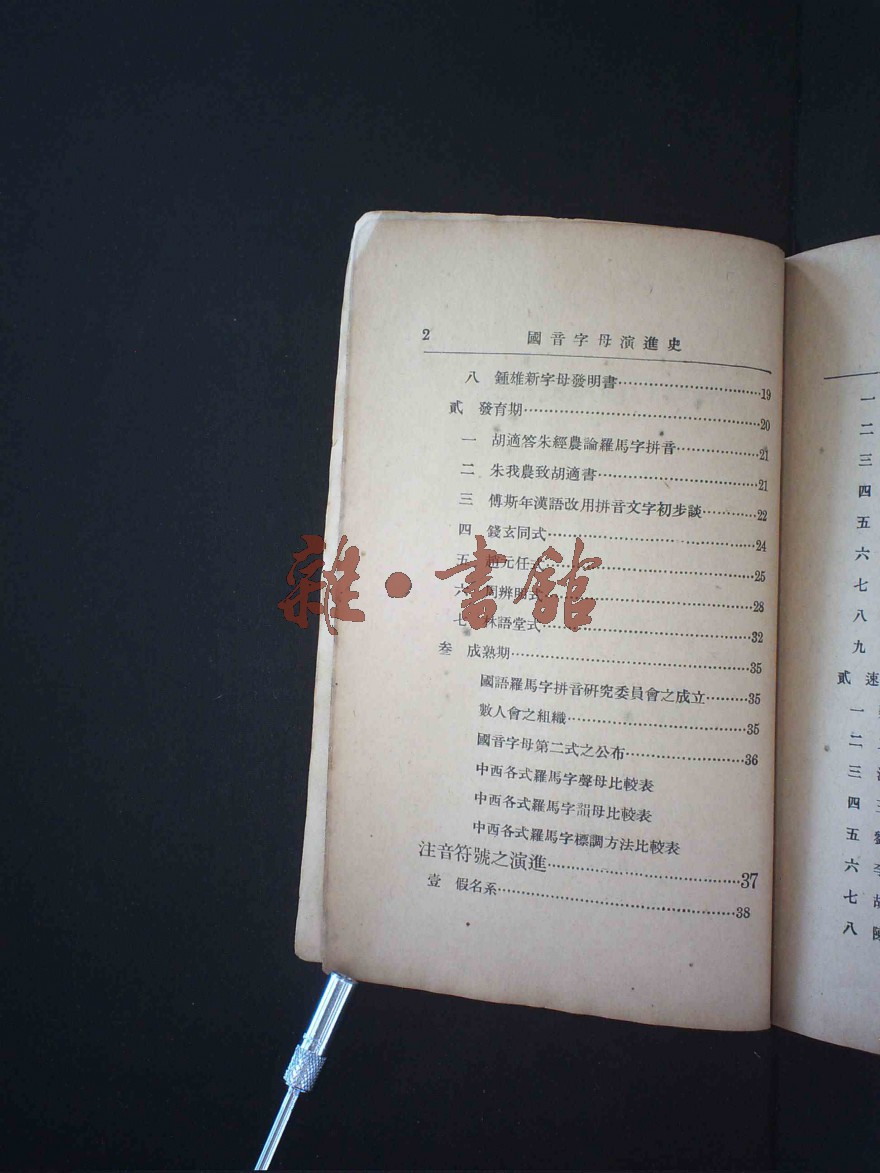 2 國音字母演進史
八 鍾雄新字母發明書……19
貳 發育期……20
一 胡適答朱經農論羅馬字拼音……21
二 朱我農致胡適書……21
三 傅斯年漢語改用拼音文字初步談……22
四 錢玄同式……24
五 趙元任式……25
六 周辨明式……28
七 林語堂式……32
叁 成熟期……35
國語羅馬字拼音研究委員會之成立……35
數人會之組織……35
國音字母第二式之公布……36
中西各式羅馬字聲母比較表
中西各式羅馬字韻母比較表
中西各式羅馬字標調方法比較表
注音符號之演進……37
壹 假名系……38
雜·書館
一
二
三
四
五
六
七
八
九
貳 速
一
二
三
四
五
六 李
七 胡
八 陳